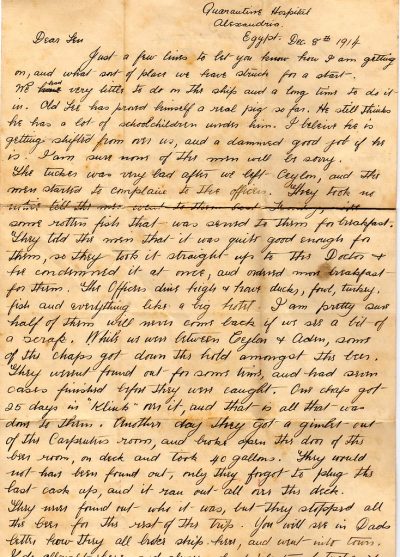 Quarantine Hospital
Alexandria.
Egypt. Dec. 8th 1914
Dear Len
Just a few lines to let you know how I am getting
on, and what sort of place we have struck for a start.
We had very little to do on the ship and a long time to do it
in. Old Lee has proved himself a real pig so far. He still thinks
he has a lot of schoolchildren under him. I beleive he is
getting shifted from over us, and a damned good job if he
is. I am sure none of the men will be sorry.
The tucker was very bad after we left Ceylon, and the
men started to complain to the officers. They took no
notice till the men went to them
some rotten fish that was served to them for breakfast.
They told the men that it was quite good enough for
them, so they took it straight up to the Doctor &
he condemned it at once, and ordered more breakfast
for them. The Officers dine high & have ducks, fowl, turkey,
fish and everything like a big hotel. I am pretty sure
half of them will never come back if we see a bit of
a scrap. While we were between Ceylon & Aden, some
of the chaps got down the hold amongst the beer.
They wernt found out for some time, and had seven
cases finished before they were caught. One chap got
25 days in "Klink" over it, and that is all that was
done to them. Another day they got a gimlet out
of the Carpenters room, and broke open the door of the
beer room, on deck and took 40 gallons. They would
not have been found out, only they forgot to plug the
last cask up, and it ran out all over the deck.
They never found out who it was, but they stopped all
the beer for the rest of the trip. You will see in Dads
letter how they all broke ship here, and went into town.